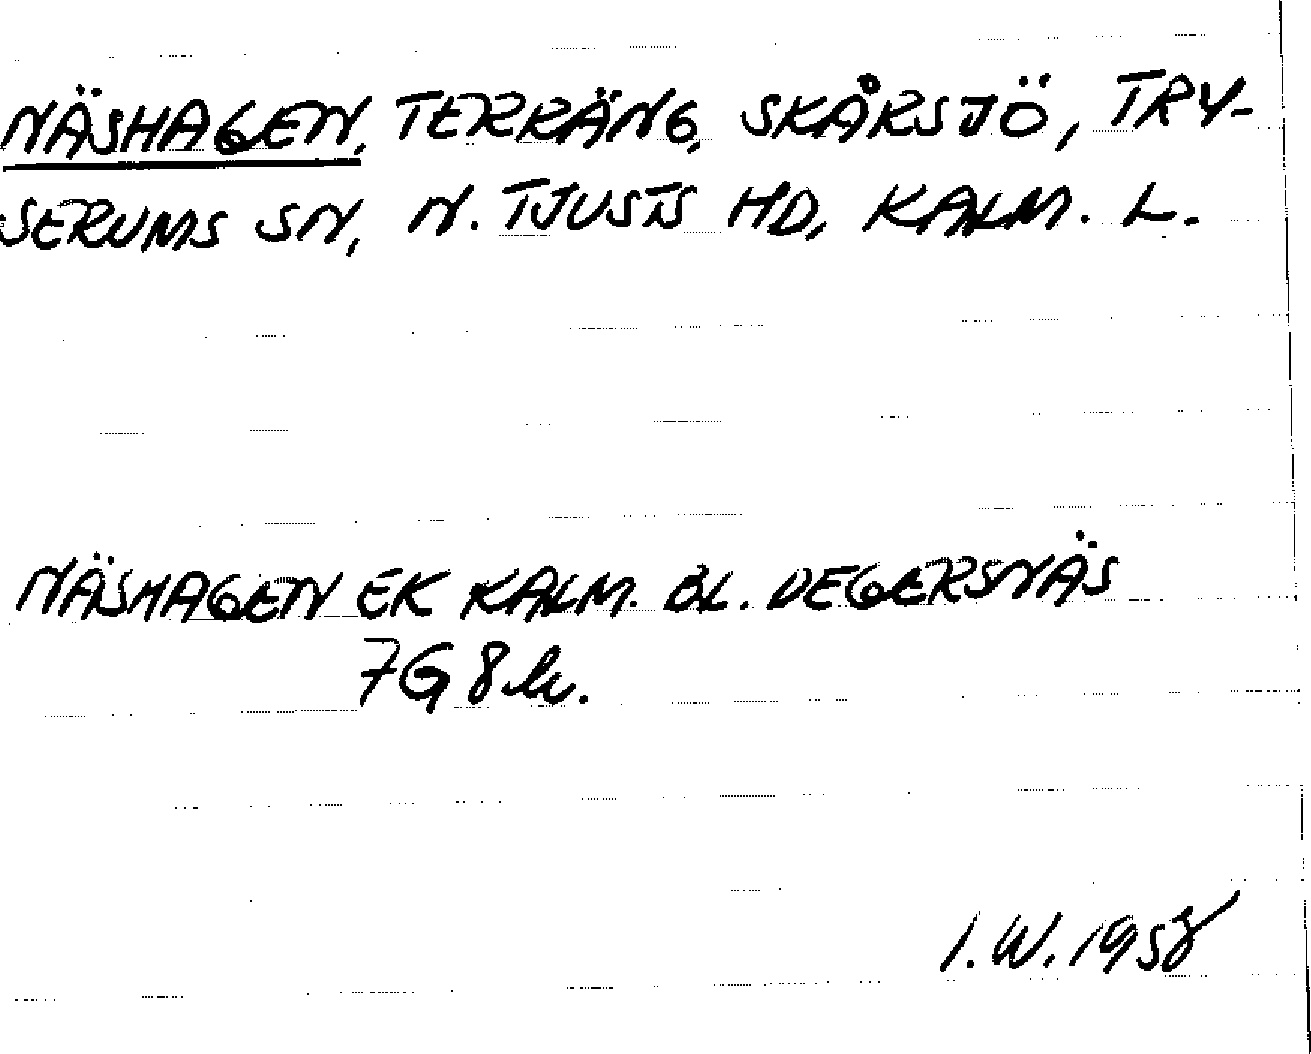 NÄSHAGEN, TERRÄNG, SKÅRSJÖ, TRY-
SERUMS SN, N. TJUSTS HD, KALM. L.
NÄSHAGEN EK KALM. BL. DEGERSNÄS
7G 8h.
I.W. 1958